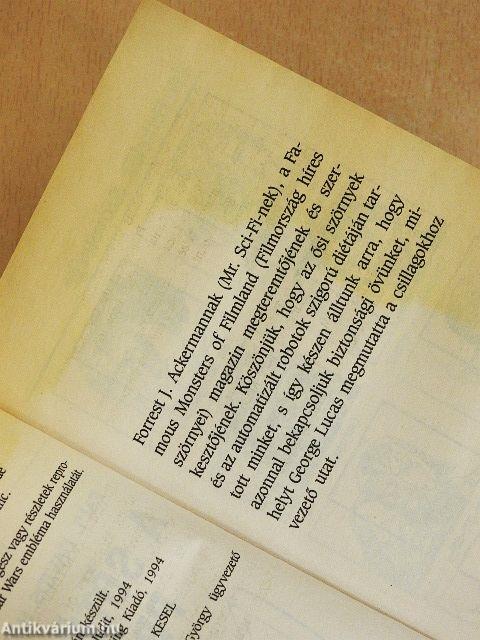 Forrest J. Ackermannak (Mr. Sci-Fi-nek), a Fa-
mous Monsters of Filmland (Filmország híres
szörnyei) magazin megteremtőjének és szer-
kesztőjének. Köszönjük, hogy az ősi szörnyek
és az automatizált robotok szigorú diétáján tar-
tott minket, s így készen álltunk arra, hogy
azonnal bekapcsoljuk biztonsági övünket, mi-
helyt George Lucas megmutatta a csillagokhoz
vezető utat.
nc.
egész vagy részletek repro-
ar Wars embléma használatát.
készült.
1994
Kiadó, 1994
KESEL
yöngy ügyvezető
Antikvárium.hu